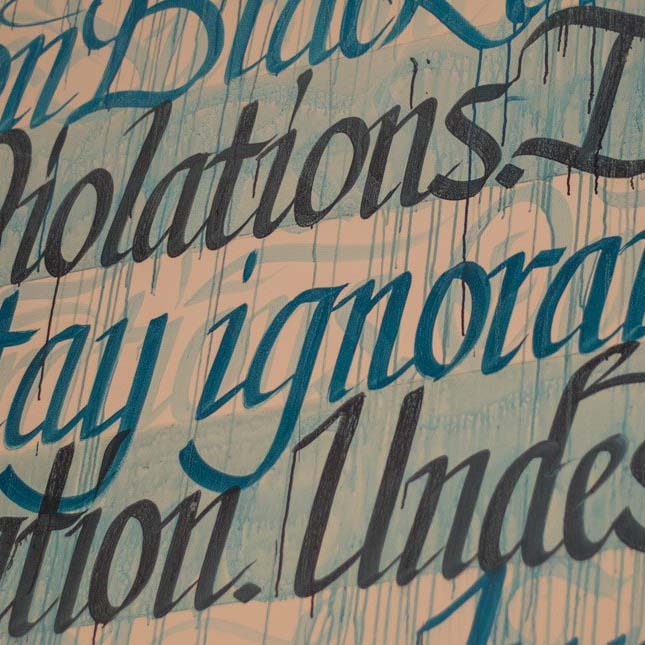 on Black
Violations.
tay ignoran
ation. Undes